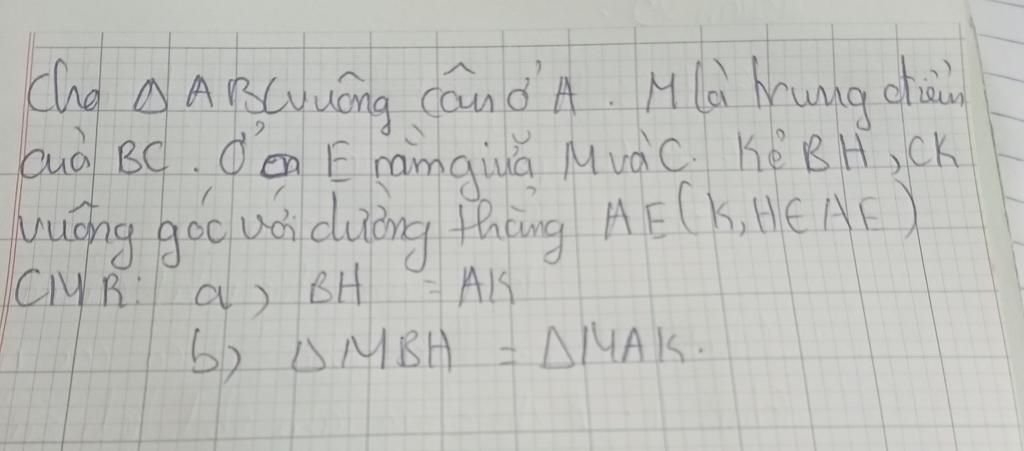 Cho Δ ABC vuông cân ở A. M là trung điểm
của BC. Điểm E nằm giữa M và C. Kẻ BH, CK
vuông góc với đường thẳng AE (K, H ∈ AE)
CMR: a) BH = AK
b) Δ MBH = Δ MAK.